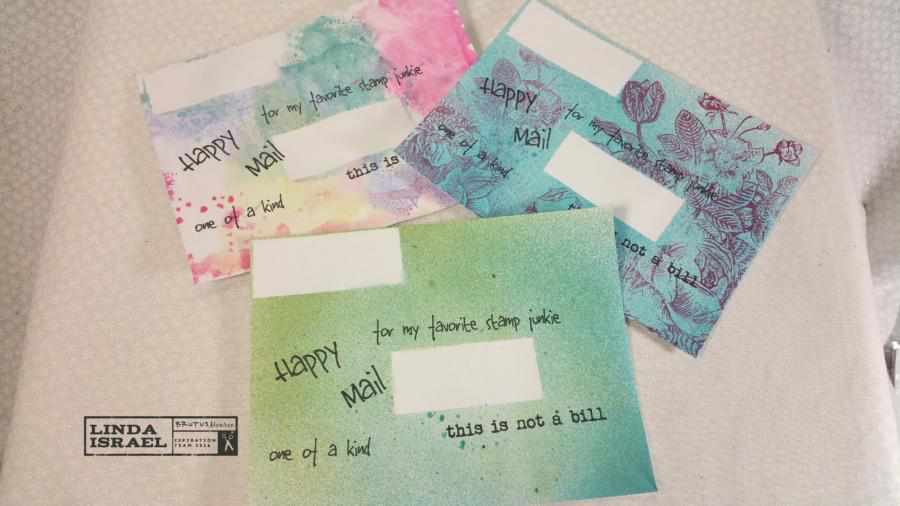 for my favorite stamp junkie
Happy
Mail
this is
one of a kind
Happy
for my favorite stamp junkie
Mail
one of a kind
not a bill
for my favorite stamp junkie
Happy
Mail
this is not a bill
one of a kind
LINDA
ISRAEL